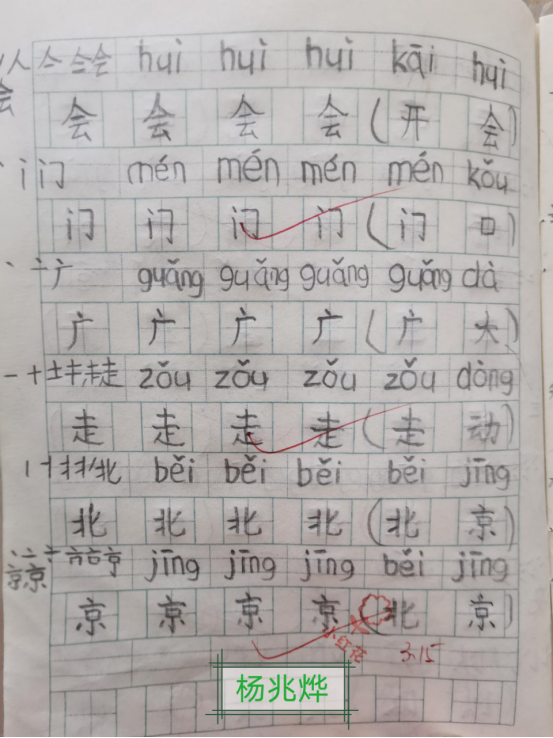 人 亼 亽 会 huì huì huì kāi huì
会 会 会 会 会 (开 会)
丶 丨 门 mén mén mén mén kǒu
门 门 门 门 (门 口)
丶 亠 广 guǎng guǎng guǎng guǎng dà
广 广 广 广 (广 大)
一 十 土 走 zǒu zǒu zǒu zǒu dòng
走 走 走 走 (走 动)
丨 北 běi běi běi běi jīng
北 北 北 北 (北 京)
丶 亠 京 jīng jīng jīng běi jīng
京 京 京 京 京 (北 京)
小红花 3.15
杨兆烨